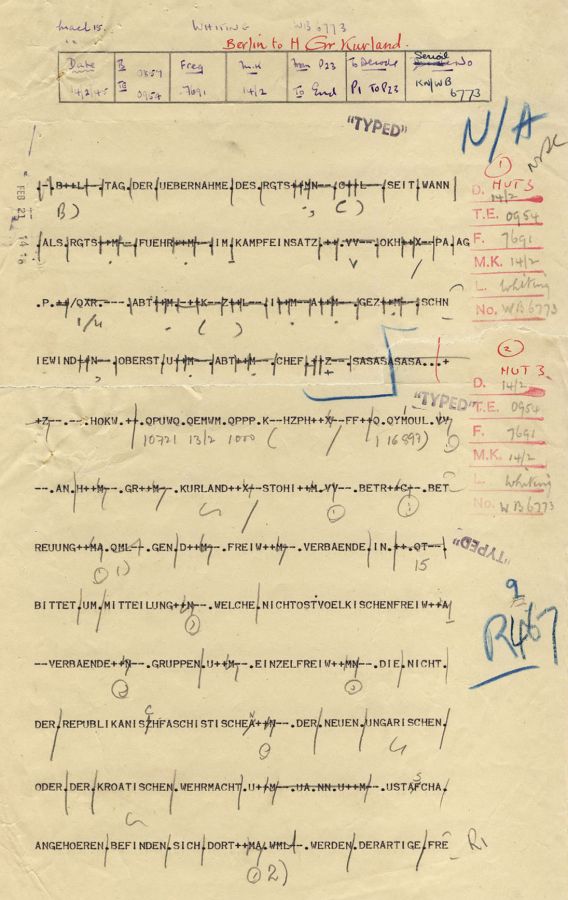 WHITING WB 6773
Berlin to H Gr Kurland.
Date Freq M.K To Decode Serial No
14/2/45 0954 7691 14/2 To End P1 To P23 KN/WB 6773
"TYPED"
N/A
--.B++L--.TAG.DER.UEBERNAHME.DES.RGTS++MN--.C++L--.SEIT.WANN
B)
FEB 21 14 16
.ALS.RGTS++M--.FUEHR++M--.IM.KAMPFEINSATZ.++.VV--.OKH++X--PA.AG
.P.++/QXR.--.ABT++M.-++K--Z++L--.I++M--A++M--.GEZ++M--.SCHN
1/4 ( )
IEWIND++N--.OBERST.U++M--.ABT++M--.CHEF.++Z--.SASASASASA...+
1
D. HUT 3 14/2
T.E. 0954
F. 7691
M.K. 14/2
L. Whiting
No. WB6773
"TYPED"
+Z--.--.HOKW.++.QPUWQ.QEMWM.QPPP.K--HZPH++X/--FF++Q.QYMOUL.VV
10721 13/2 1000 ( 1 16897)
--.AN.H++M--.GR++M--.KURLAND++X--STOHI++M.VV--.BETR++C--.BET
REUUNG++MA.QML--.GEN.D++M--.FREIW++M--.VERBAENDE.IN.++.QT--.
1) 15
"TYPED"
2
D. HUT 3 14/2
T.E. 0954
F. 7691
M.K. 14/2
L. Whiting
No. WB6773
BITTET.UM.MITTEILUNG++N--.WELCHE.NICHTOSTVOELKISCHENFREIW++A
--VERBAENDE++N--.GRUPPEN.U++M--.EINZELFREIW++MN--.DIE.NICHT.
DER.REPUBLIKANISZHFASCHISTISCHEA++N--.DER.NEUEN.UNGARISCHEN.
ODER.DER.KROATISCHEN.WEHRMACHT.U++M--.UA.NN.U++M--.USTAFCHA.
ANGEHOEREN.BEFINDEN.SICH.DORT++MA.WML--.WERDEN.DERARTIGE.FRE
2)
R1